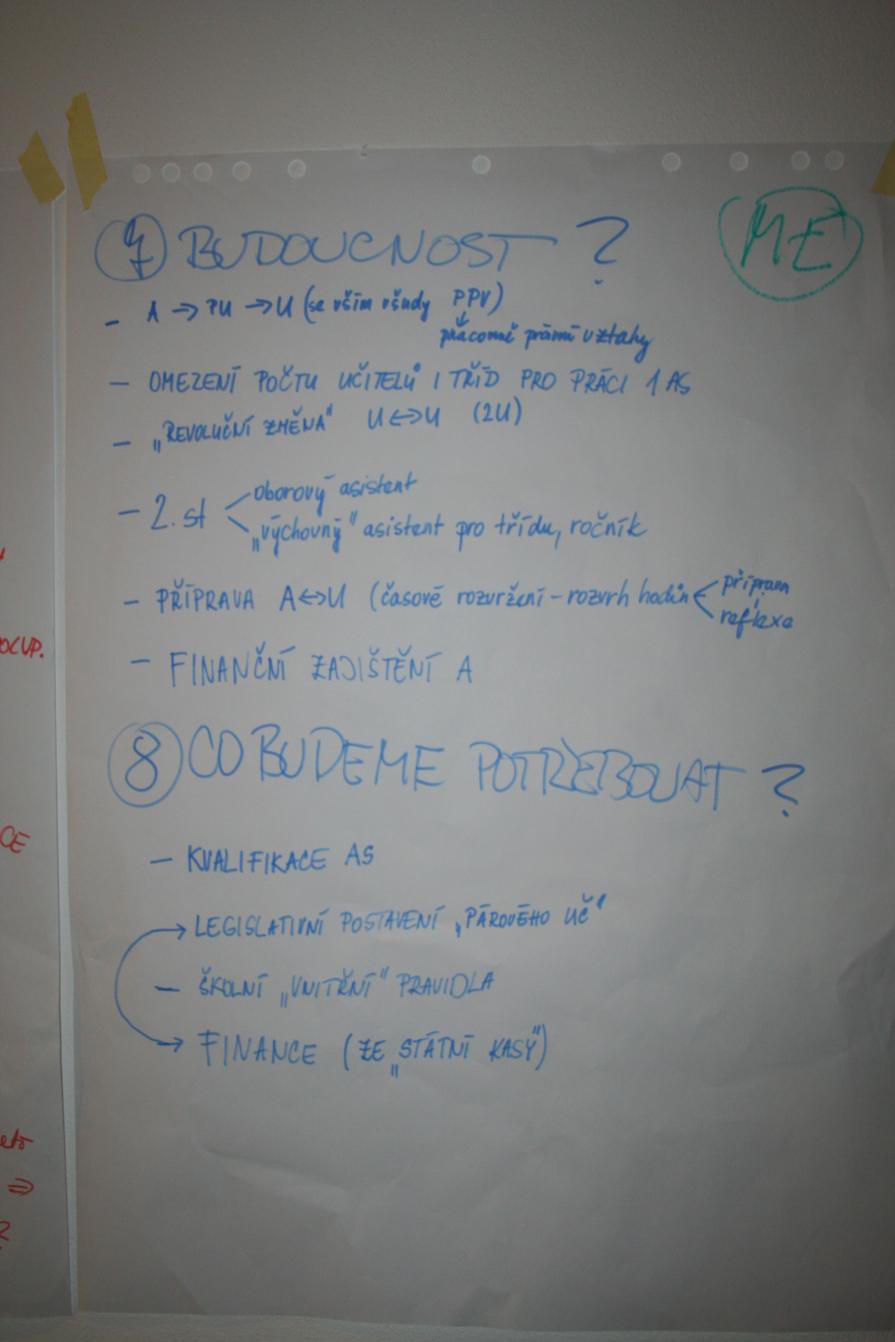 ME
7 BUDOUCNOST ?
- A → PU → U (se vším všudy PPV)
↓
pracovně právní vztahy
- OMEZENÍ POČTU UČITELŮ I TŘÍD PRO PRÁCI 1 AS
- „REVOLUČNÍ ZMĚNA" U ↔ U (2U)
- 2. st oborový asistent
„výchovný" asistent pro třídu, ročník
- PŘÍPRAVA A ↔ U (časové rozvržení - rozvrh hodin příprava
reflexe
- FINANČNÍ ZAJIŠTĚNÍ A
8 CO BUDEME POTŘEBOVAT ?
- KVALIFIKACE AS
→ LEGISLATIVNÍ POSTAVENÍ „PÁROVÉHO UČ"
- ŠKOLNÍ „VNITŘNÍ" PRAVIDLA
→ FINANCE (ZE „STÁTNÍ KASY")
OCUP.
CE
⇒